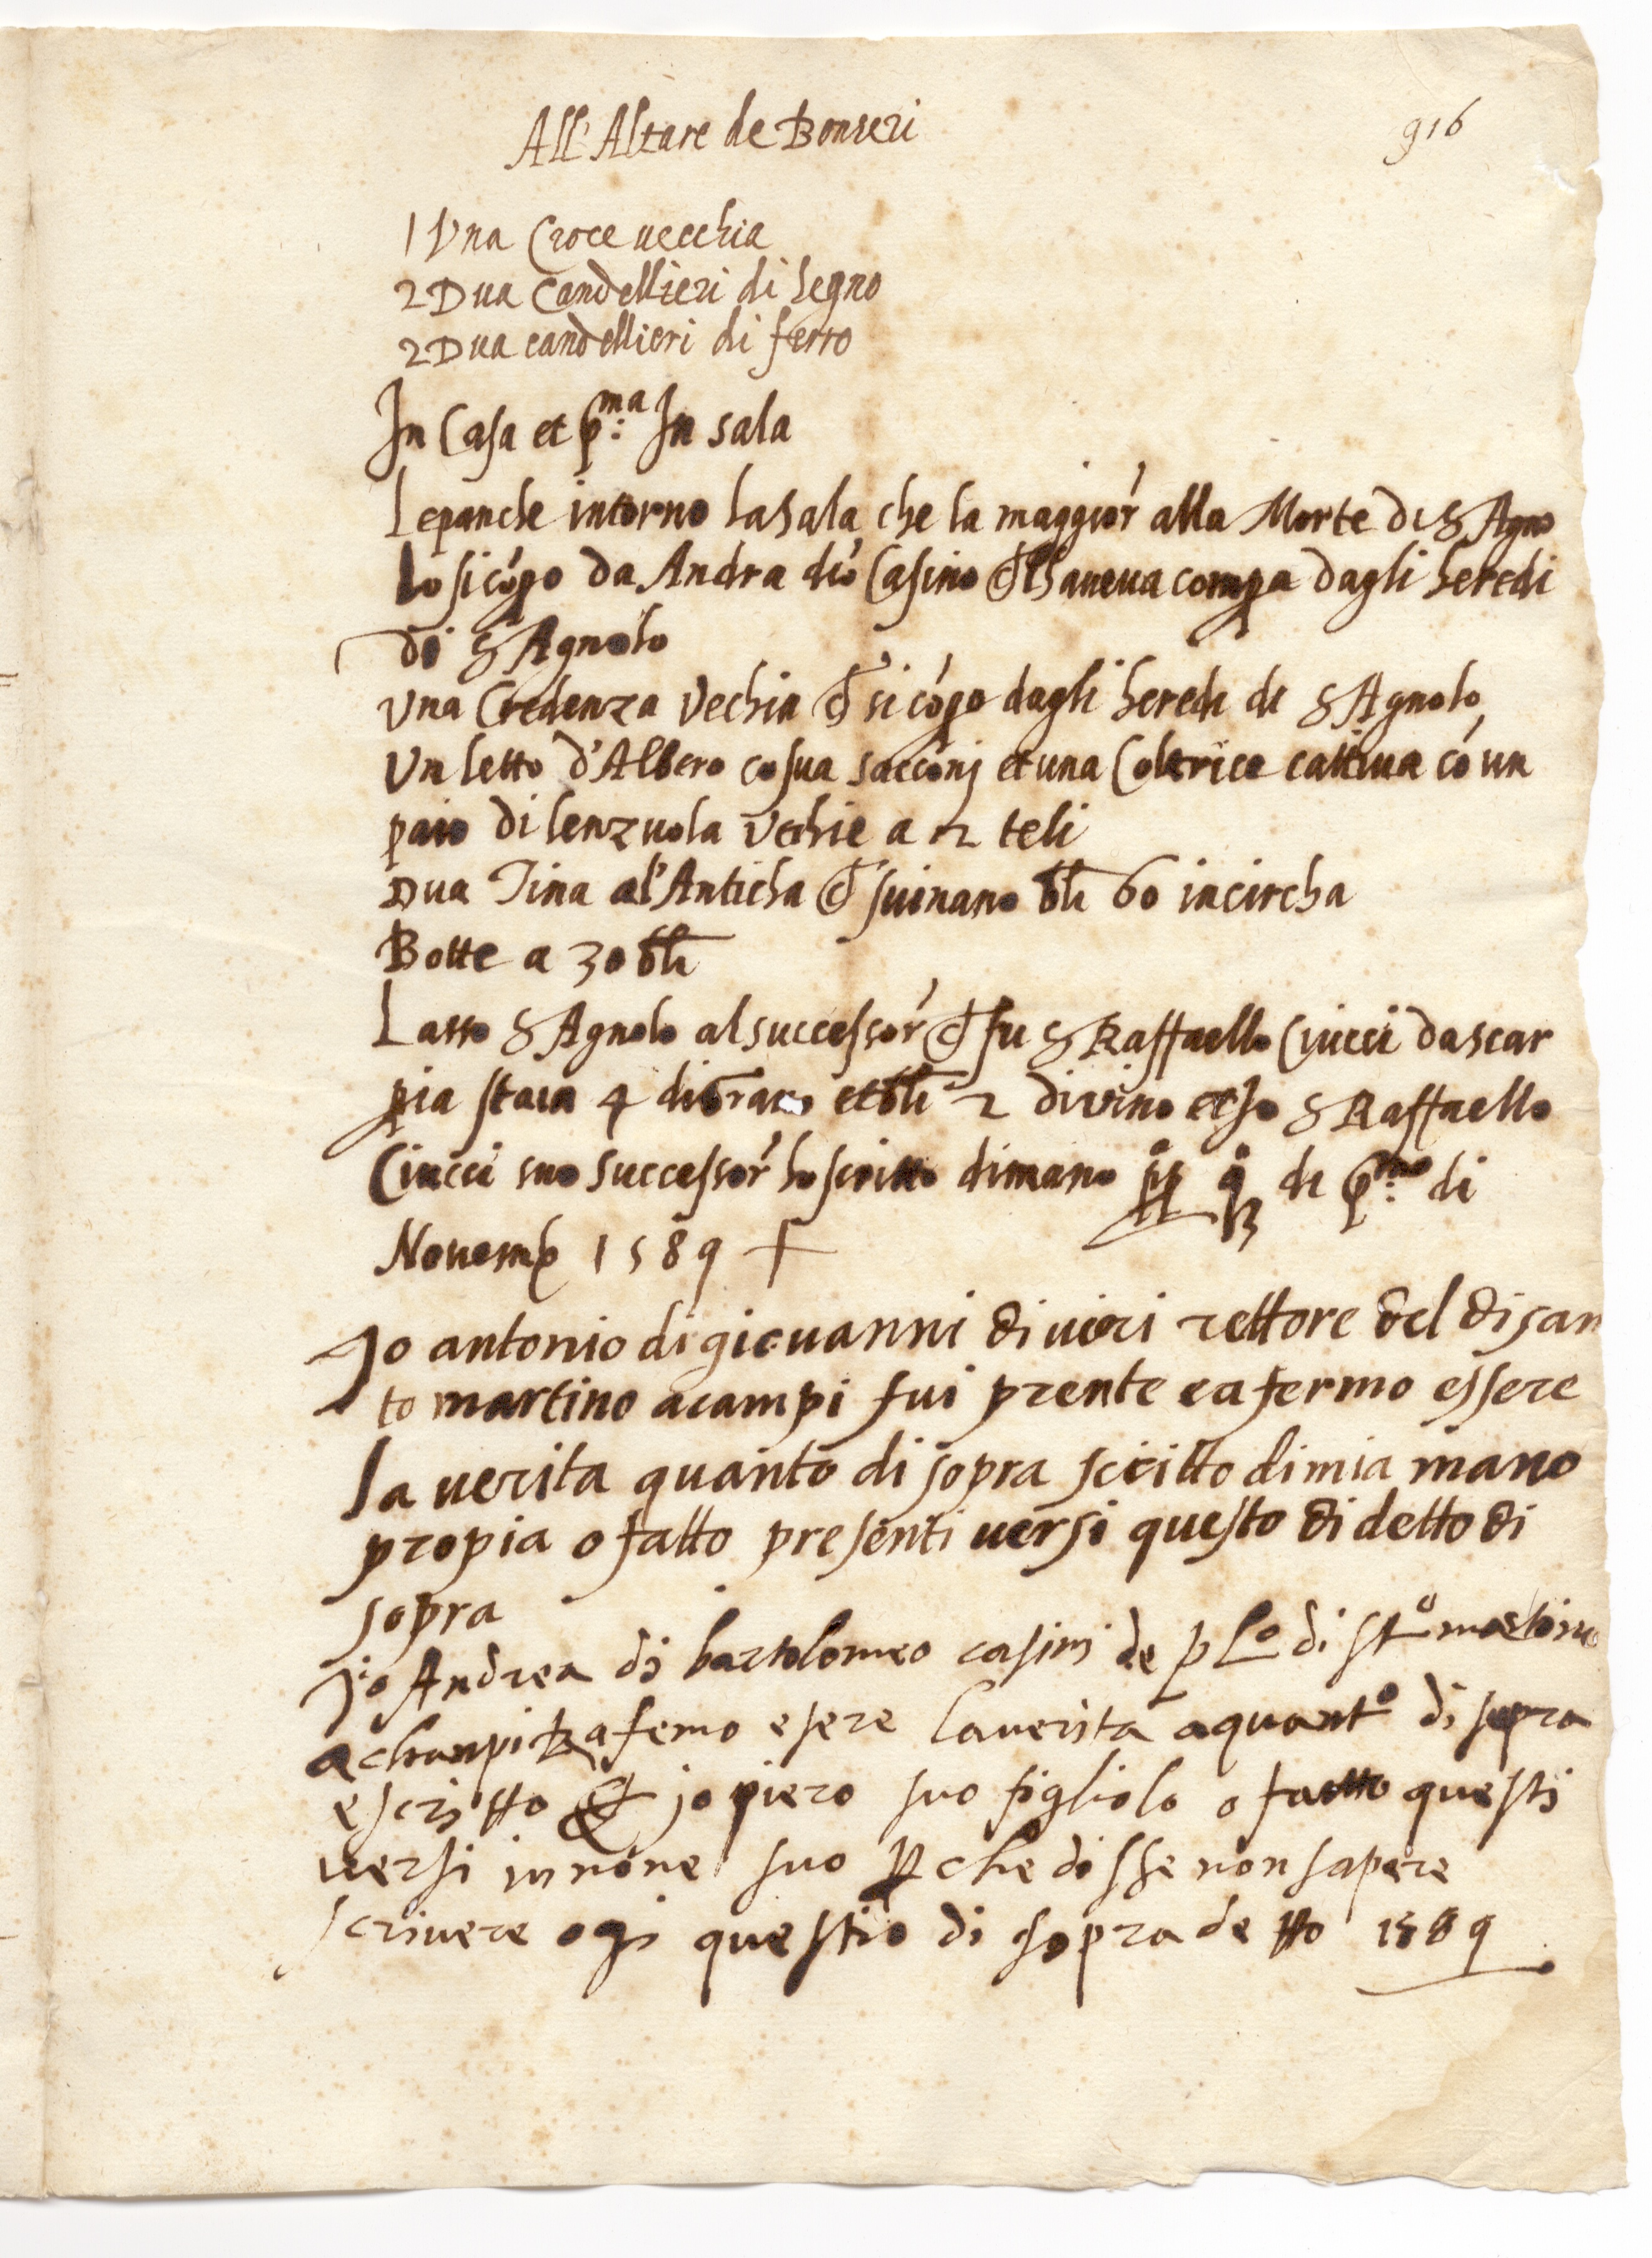 All'Altare de Bonseri
916
1 Una Croce vecchia
2 Dua Candellieri di legno
2 Dua candellieri di ferro
In Casa et p:ma In sala
Le panche intorno la sala che la maggior' alla Morte di S Agno
lo si cópo da Andra di Casino che l'haveva compa dagli heredi
di S Agnolo
Una Credenza Vechia che si cópo dagli heredi di S Agnolo
Un letto d'Albero co sua sacconj et una Coltrice cattiva có un
paio di lenzuola Vechie a 2 teli
Dua Tina al'Anticha che svinano bli 60 incircha
Botte a 30 bli
Lasso S Agnolo al successor' che fu S Raffaello Ciucci da scar
pia staia 4 di grano et bli 2 di vino et Io S Raffaello
Ciucci suo successor' ho scritto di mano pp q di p:mo di
Novemb 1589
Io antonio di giovanni di vieri rettore del di san
to martino a campi fui prente e afermo essere
la verita quanto di sopra scritto di mia mano
propia o fatto presenti versi questo di detto di
sopra
Jo Andrea di bartolomeo casini de plo di sto martino
a chanpi afemo esere la verita a quanto di sopra
e scritto et jo piero suo figliolo o fatto questi
versi in nóne suo p che disse non sapere
scrivere ogi questo di sopra detto 1589